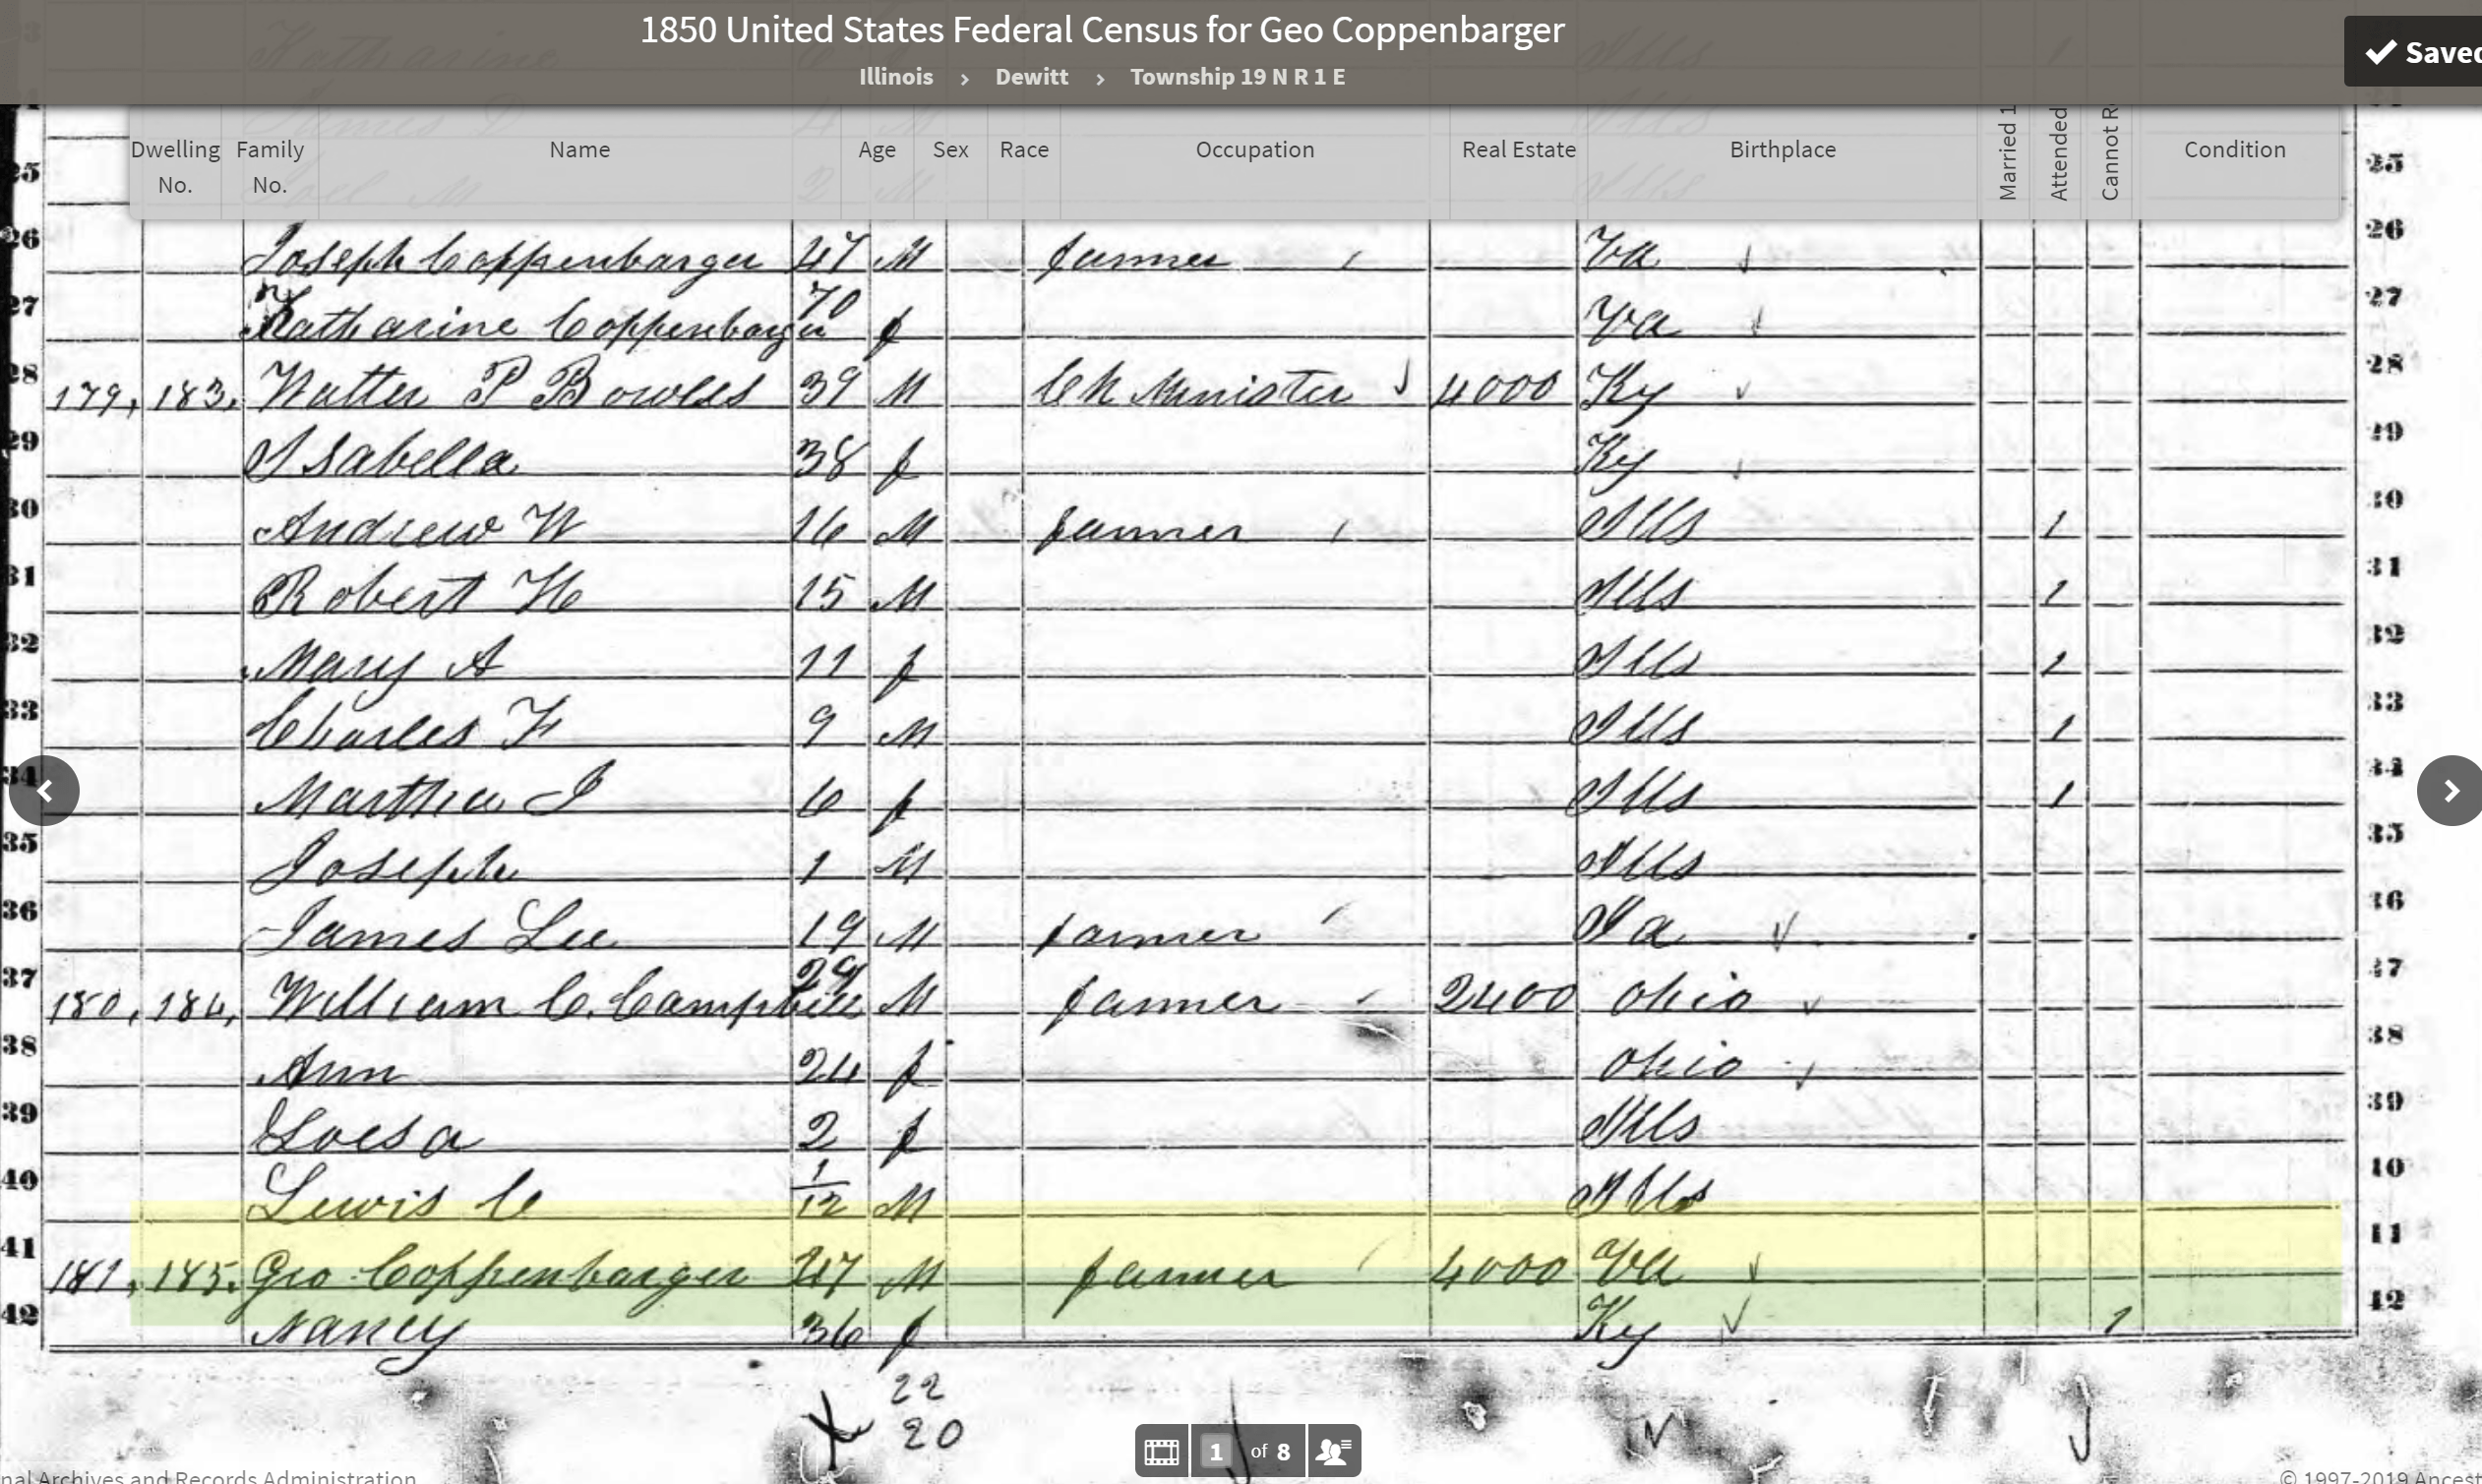 1850 United States Federal Census for Geo Coppenbarger
Illinois > Dewitt > Township 19 N R 1 E
Saved
Dwelling No. Family No. Name Age Sex Race Occupation Real Estate Birthplace Married 1 Attended Cannot R Condition
25 25
26 Joseph Coppenbarger 47 M farmer Va 26
27 Katharine Coppenbarger 70 f Va 27
28 179, 183, Walter P Bowles 39 M Ch Minister 4000 Ky 28
29 Isabella 38 f Ky 29
30 Andrew W 16 M farmer Ills 1 30
31 Robert H 15 M Ills 1 31
32 Mary A 11 f Ills 1 32
33 Charles F 9 M Ills 1 33
34 Martha J 6 f Ills 1 34
35 Joseph 1 M Ills 35
36 James Lee 19 M farmer 36
37 180, 184, William C. Campbell 29 M farmer 2400 Ohio 37
38 Ann 24 f Ohio 38
39 Loesa 2 f Ills 39
40 Lewis C 1/12 M Ills 40
41 181, 185. Geo Coppenbarger 47 M farmer 4000 Va 41
42 Nancy 36 f Ky 1 42
22
20
1 of 8
nal Archives and Records Administration
© 1997-2019 Ancest